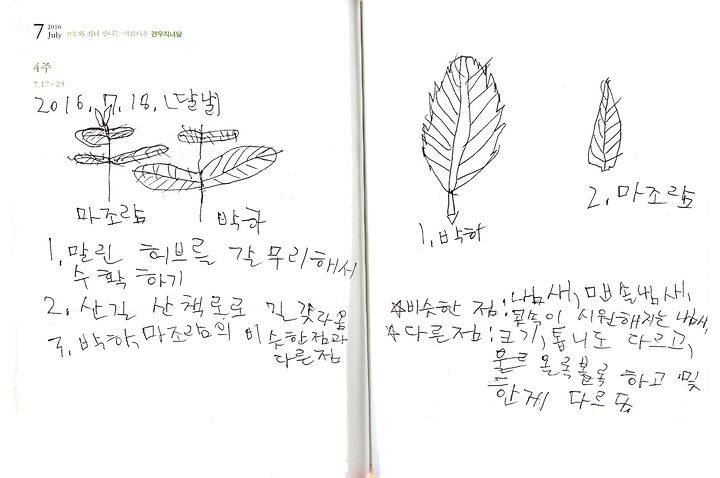 7 2016 July 견우와 직녀 만나는 아름다운 견우직녀달
4주
7.17~23
2016. 7. 18. (달날)
마조람
박하
1. 말린 허브를 갈무리해서
수확하기
2. 산길 산책로로
3. 박하, 마조람의 비슷한점과
다른점
1. 박하
2. 마조람
☆비슷한 점: 냄새, 맵쏘냄새,
시원해지는 냄새,
☆다른점: 크기, 톱니도 다르고,
올록볼록 하고 밋
한게 다르다